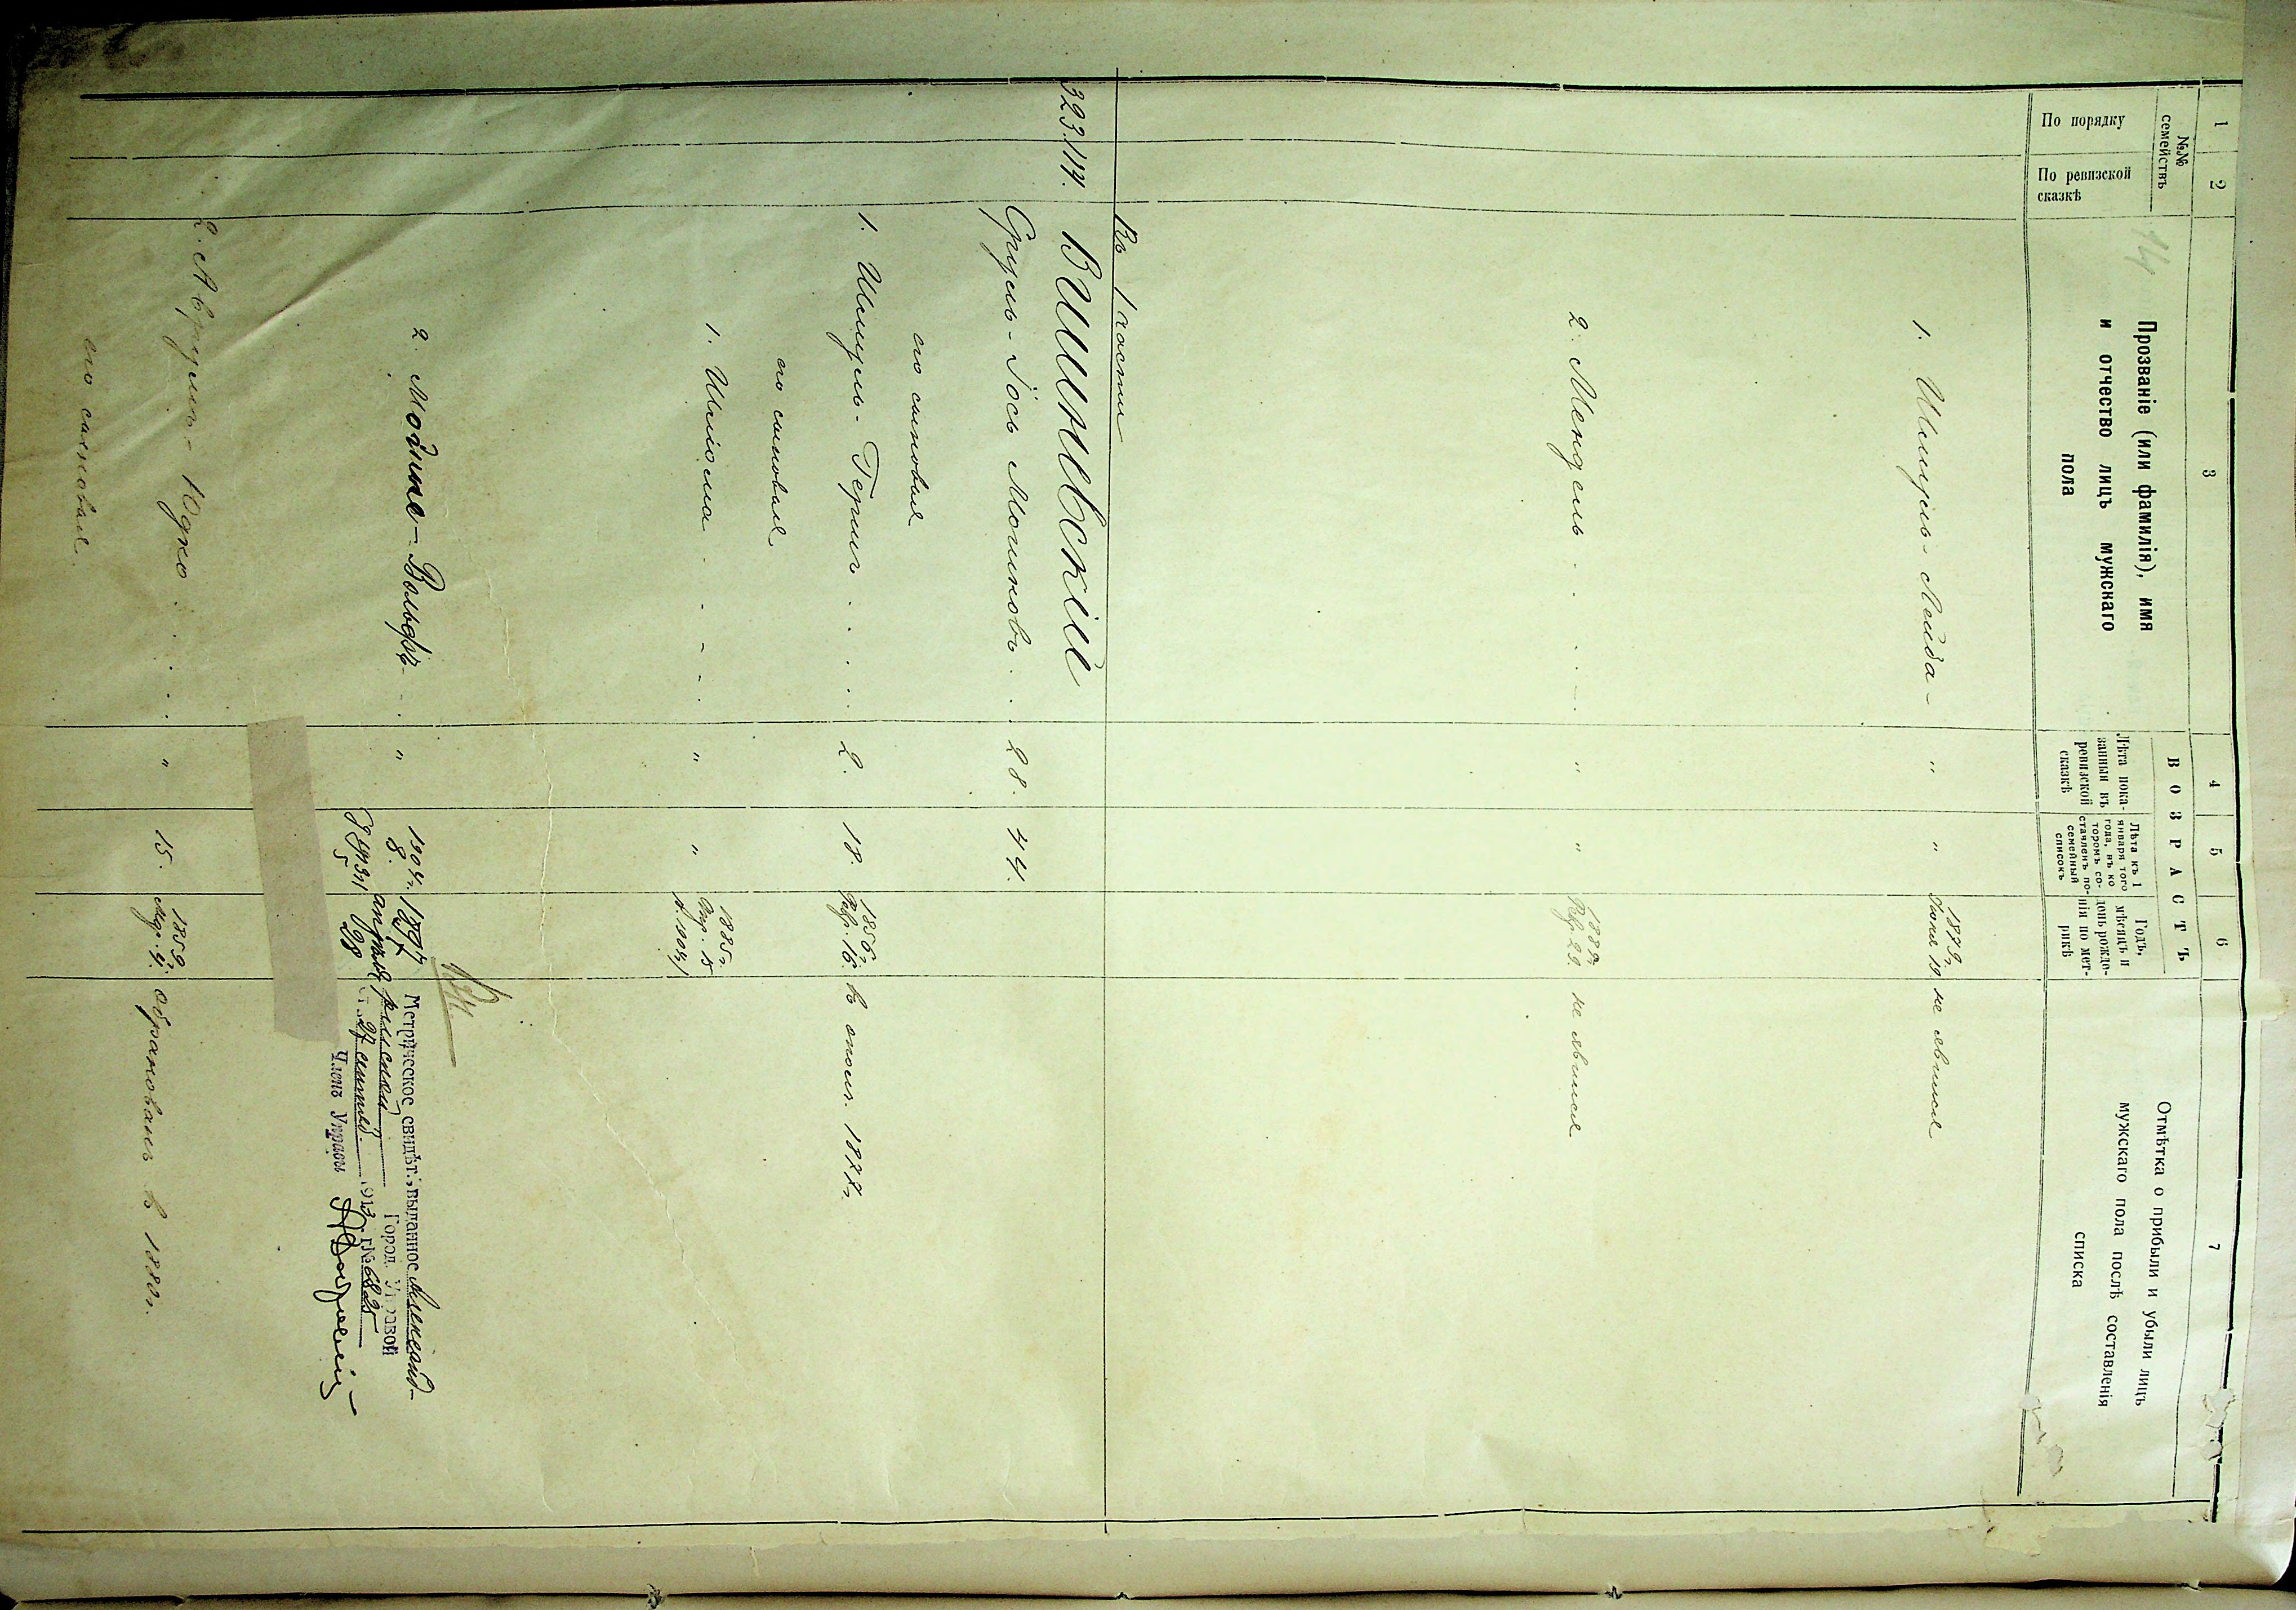 1 2 3 4 5 6 7
№№ семействъ
По порядку
По ревизской сказкѣ
14
Прозваніе (или фамилія), имя
и отчество лицъ мужскаго
пола
ВОЗРАСТЪ
Лѣта пока-
занныя въ
ревизской
сказкѣ
Лѣта къ 1
января того
года, въ ко
торомъ со-
ставленъ по-
семейный
списокъ
Годъ,
мѣсяцъ и
день рожде-
нія по мет-
рикѣ
Отмѣтка о прибыли и убыли лицъ
мужскаго пола послѣ составленія
списка
1. Шмуль-Лейба - " " 1879г. Іюля 19 не явился
2. Мендель . . . . - " " 29 не явился
Въ 1 части
323. 114. Вишневскій
Сруль-Іось Мошковъ . . 28. 44.
его сыновья
1. Шмуль-Гершъ . . . . 2. 18. 1856г. 16. въ 1877г.
его сыновья
1. Шліома . - - - . " " 1885г.
2. Мойше-Вольфъ - . " 1904г. 1897
8. апрѣля
5 28
Метрическое свидѣт., выданное Александ-
рійской Город. Управой
27 сентяб. 1913 г. № 6825
Членъ Управы
2. Аврумъ-Юдко . . . . " 15. 1859 4. обракованъ въ 1880г.
его сыновья